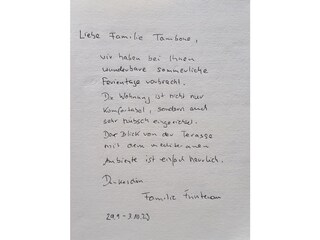 Liebe Familie Tambone,
wir haben bei Ihnen
wunderbare sommerliche
Ferientage verbracht.
Die Wohnung ist nicht nur
komfortabel, sondern auch
sehr hübsch eingerichtet.
Der Blick von der Terasse
mit dem mediterranen
Ambiente ist einfach herrlich.
Dankeschön
Familie